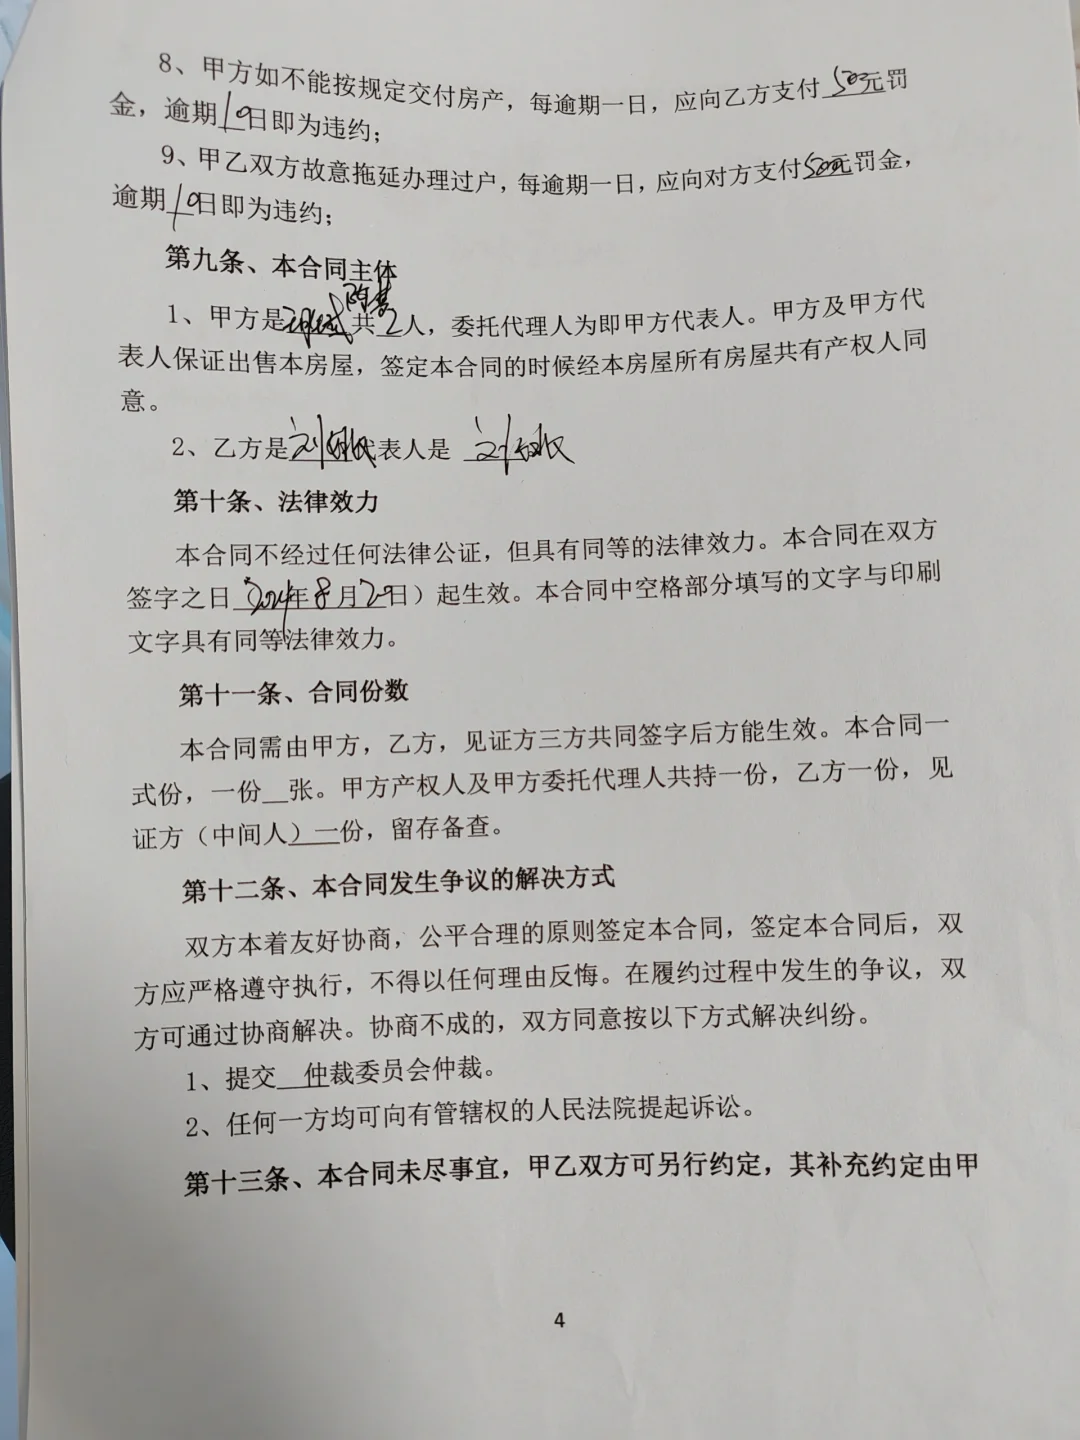 8、甲方如不能按规定交付房产，每逾期一日，应向乙方支付500元罚
金，逾期10日即为违约；
9、甲乙双方故意拖延办理过户，每逾期一日，应向对方支付500元罚金，
逾期10日即为违约；
第九条、本合同主体
1、甲方是 共2人，委托代理人为即甲方代表人。甲方及甲方代
表人保证出售本房屋，签定本合同的时候经本房屋所有房屋共有产权人同
意。
2、乙方是刘 代表人是 刘
第十条、法律效力
本合同不经过任何法律公证，但具有同等的法律效力。本合同在双方
签字之日 2024年8月20日）起生效。本合同中空格部分填写的文字与印刷
文字具有同等法律效力。
第十一条、合同份数
本合同需由甲方，乙方，见证方三方共同签字后方能生效。本合同一
式份，一份__张。甲方产权人及甲方委托代理人共持一份，乙方一份，见
证方（中间人）一份，留存备查。
第十二条、本合同发生争议的解决方式
双方本着友好协商，公平合理的原则签定本合同，签定本合同后，双
方应严格遵守执行，不得以任何理由反悔。在履约过程中发生的争议，双
方可通过协商解决。协商不成的，双方同意按以下方式解决纠纷。
1、提交__仲裁委员会仲裁。
2、任何一方均可向有管辖权的人民法院提起诉讼。
第十三条、本合同未尽事宜，甲乙双方可另行约定，其补充约定由甲
4